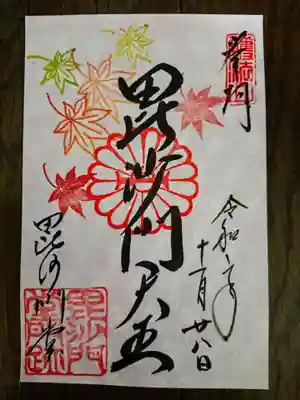 奉拝
令和二年
十一月廿八日
毘沙門天王
毘沙門堂
毘沙門
堂門跡